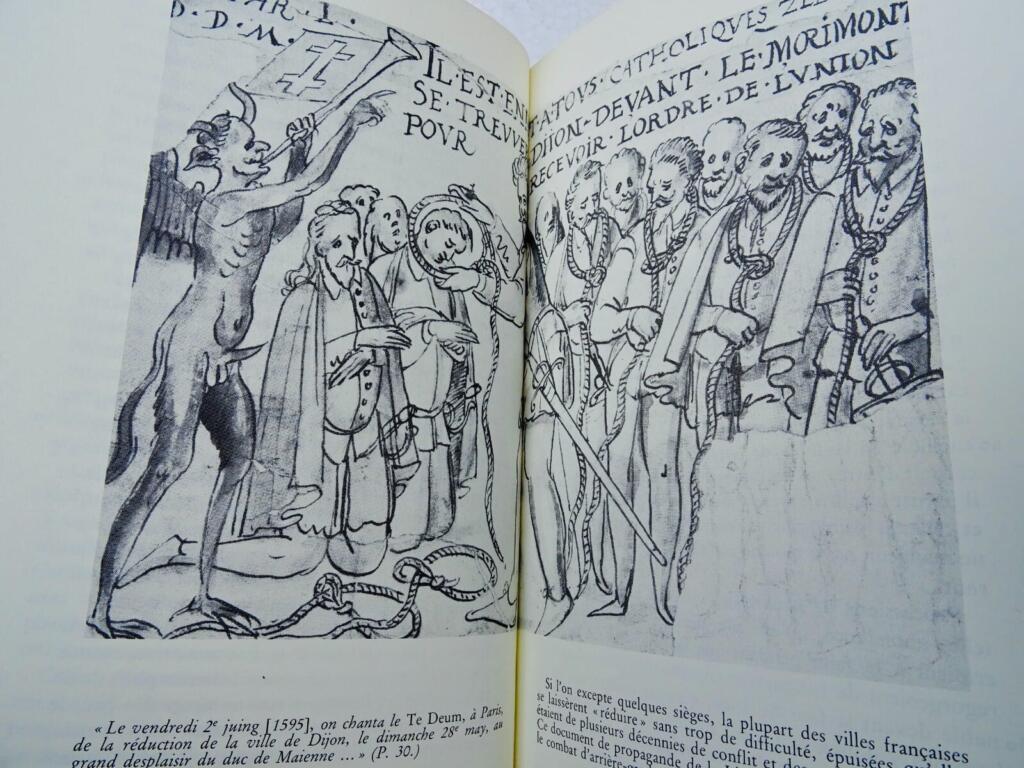 PAR I.
D. D. M.
IL·EST·EN
SE·TREVVE
POVR
T·A·TOVS·CATHOLIQVES
DIION·DEVANT·LE·MORIMONT
RECEVOIR·LORDRE·DE·LVNION
« Le vendredi 2e juing [1595], on chanta le Te Deum, à Paris,
de la réduction de la ville de Dijon, le dimanche 28e may, au
grand desplaisir du duc de Maienne ... » (P. 30.)
Si l'on excepte quelques sièges, la plupart des villes françaises
se laissèrent «réduire» sans trop de difficulté, épuisées qu'elles
étaient de plusieurs décennies de conflit et de
Ce document de propagande de la
le combat d'arrière